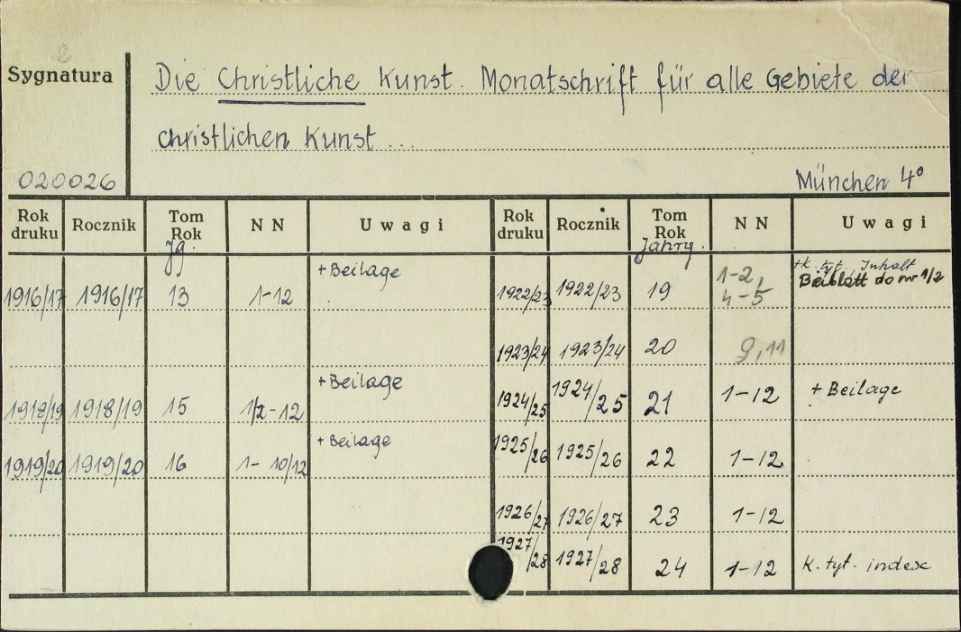 Sygnatura
Die Christliche Kunst. Monatschrift für alle Gebiete der
christlichen Kunst ...
020026
München 4°
Rok druku Rocznik Tom Rok NN Uwagi Rok druku Rocznik Tom Rok NN Uwagi
Jg. Jahrg.
1916/17 1916/17 13 1-12 + Beilage
1918/19 1918/19 15 1/2-12 + Beilage
1919/20 1919/20 16 1- 10/12 + Beilage
1922/23 1922/23 19 1-2, 4-5 +k. tyt, Inhalt
Beiblatt do nr 1/2
1923/24 1923/24 20 9,11
1924/25 1924/25 21 1-12 + Beilage
1925/26 1925/26 22 1-12
1926/27 1926/27 23 1-12
1927/28 1927/28 24 1-12 k. tyt. indexe